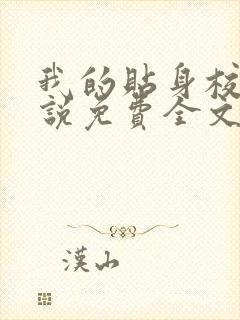 我的贴身校
說免費全文
漢山